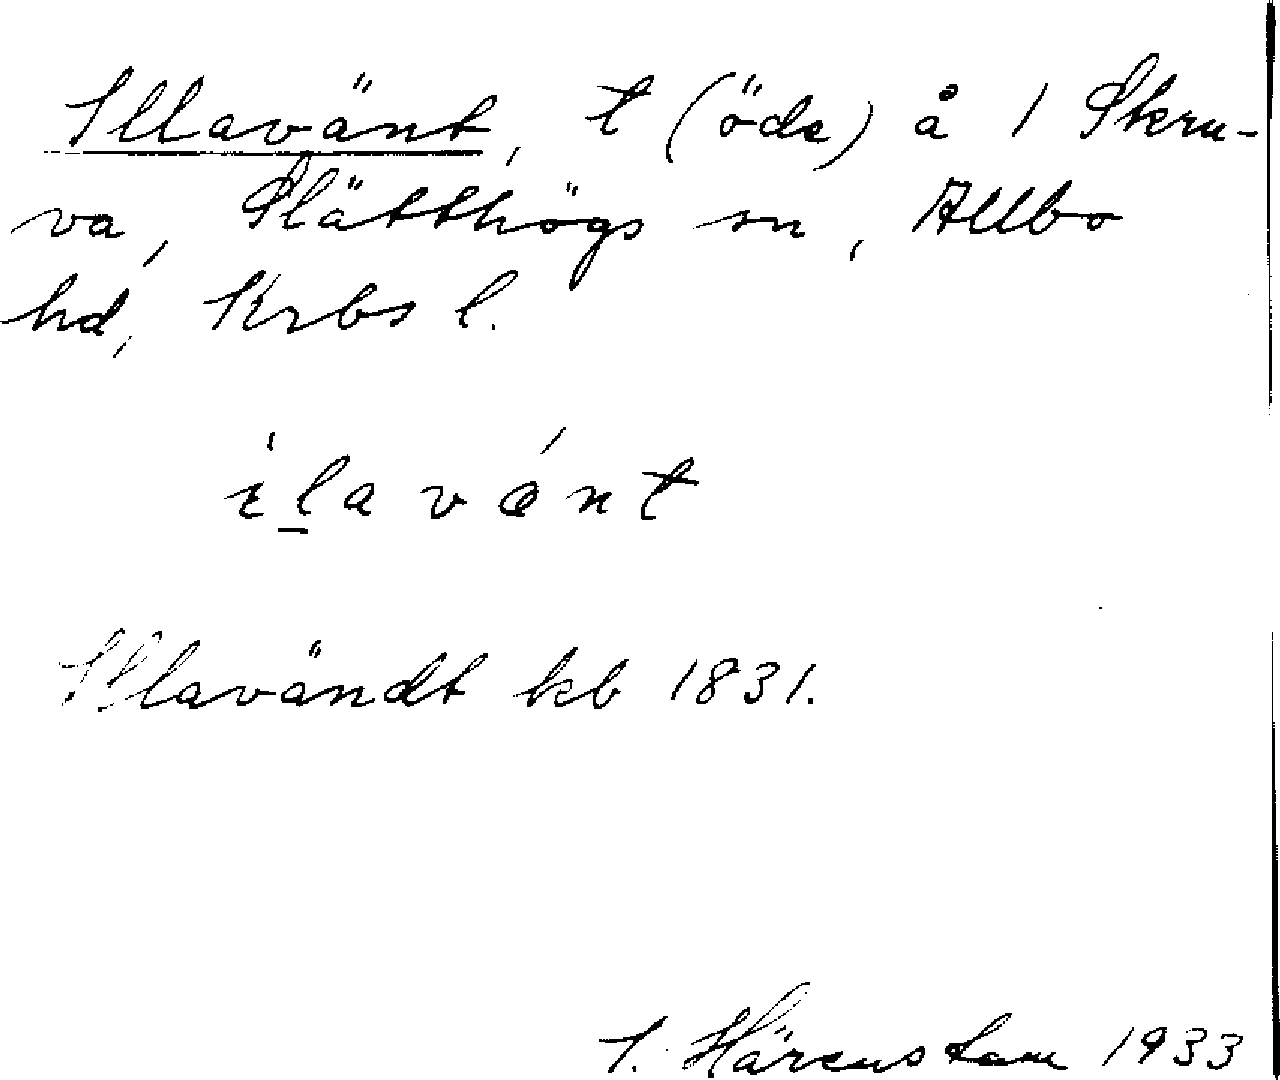 Illavänt, t (öde) å 1 Skru-
va, Slätthögs sn, Allbo
hd, Krbs l.
ilavǽnt
Illavändt kb 1831.
I. Härenstam 1933